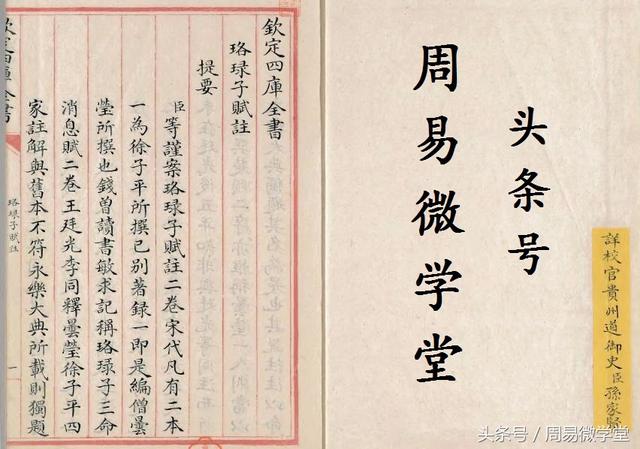 欽定四庫全書
珞琭子賦註
提要
臣等謹案珞琭子賦註二卷宋代凡有二本
一為徐子平所撰已别著録一即是編僧曇
瑩所撰也錢曽讀書敏求記稱珞琭子三命
消息賦二卷王廷光李同釋曇瑩徐子平四
家註解與舊本不符永樂大典所載則獨題
珞琭子賦註
一
頭条号
周易微学堂
詳校官貴州道御史臣孫家賢
头条号 / 周易微学堂